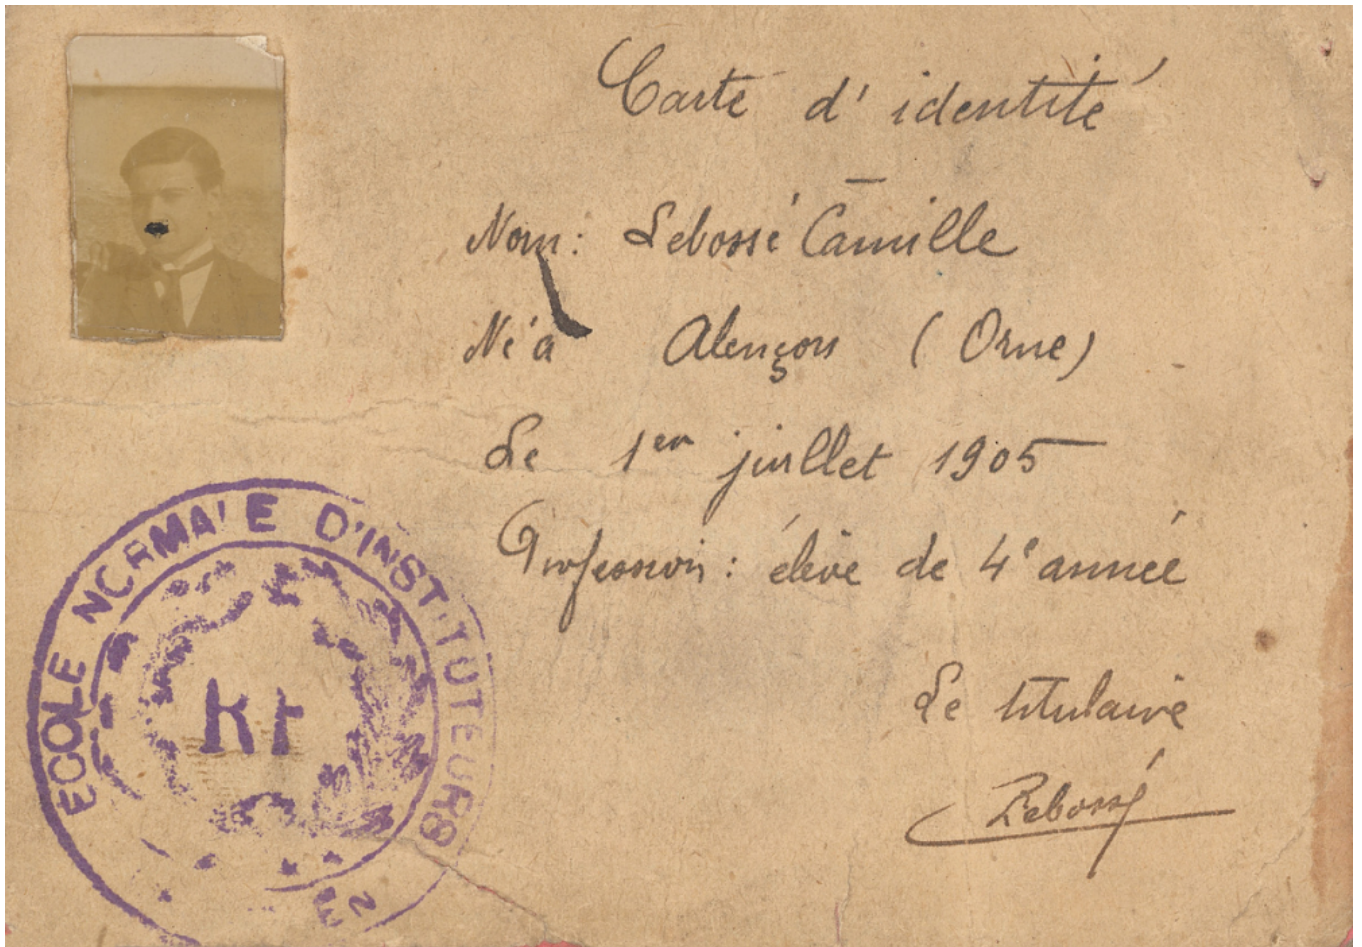 Carte d'identité
Nom: Lebossé Camille
Né à Alençon (Orne)
Le 1er juillet 1905
Profession: élève de 4e année
Le titulaire
Lebossé
ECOLE NORMALE D'INSTITUTEURS
RF